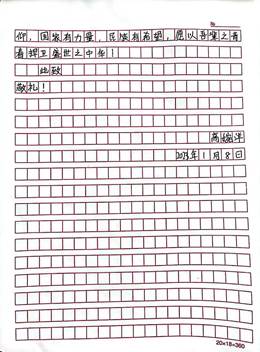 仰，国家有力量，民族有希望，愿以吾辈之青
春捍卫盛世之中华！
此致
敬礼！
高
2023年1月8日
20×18=360